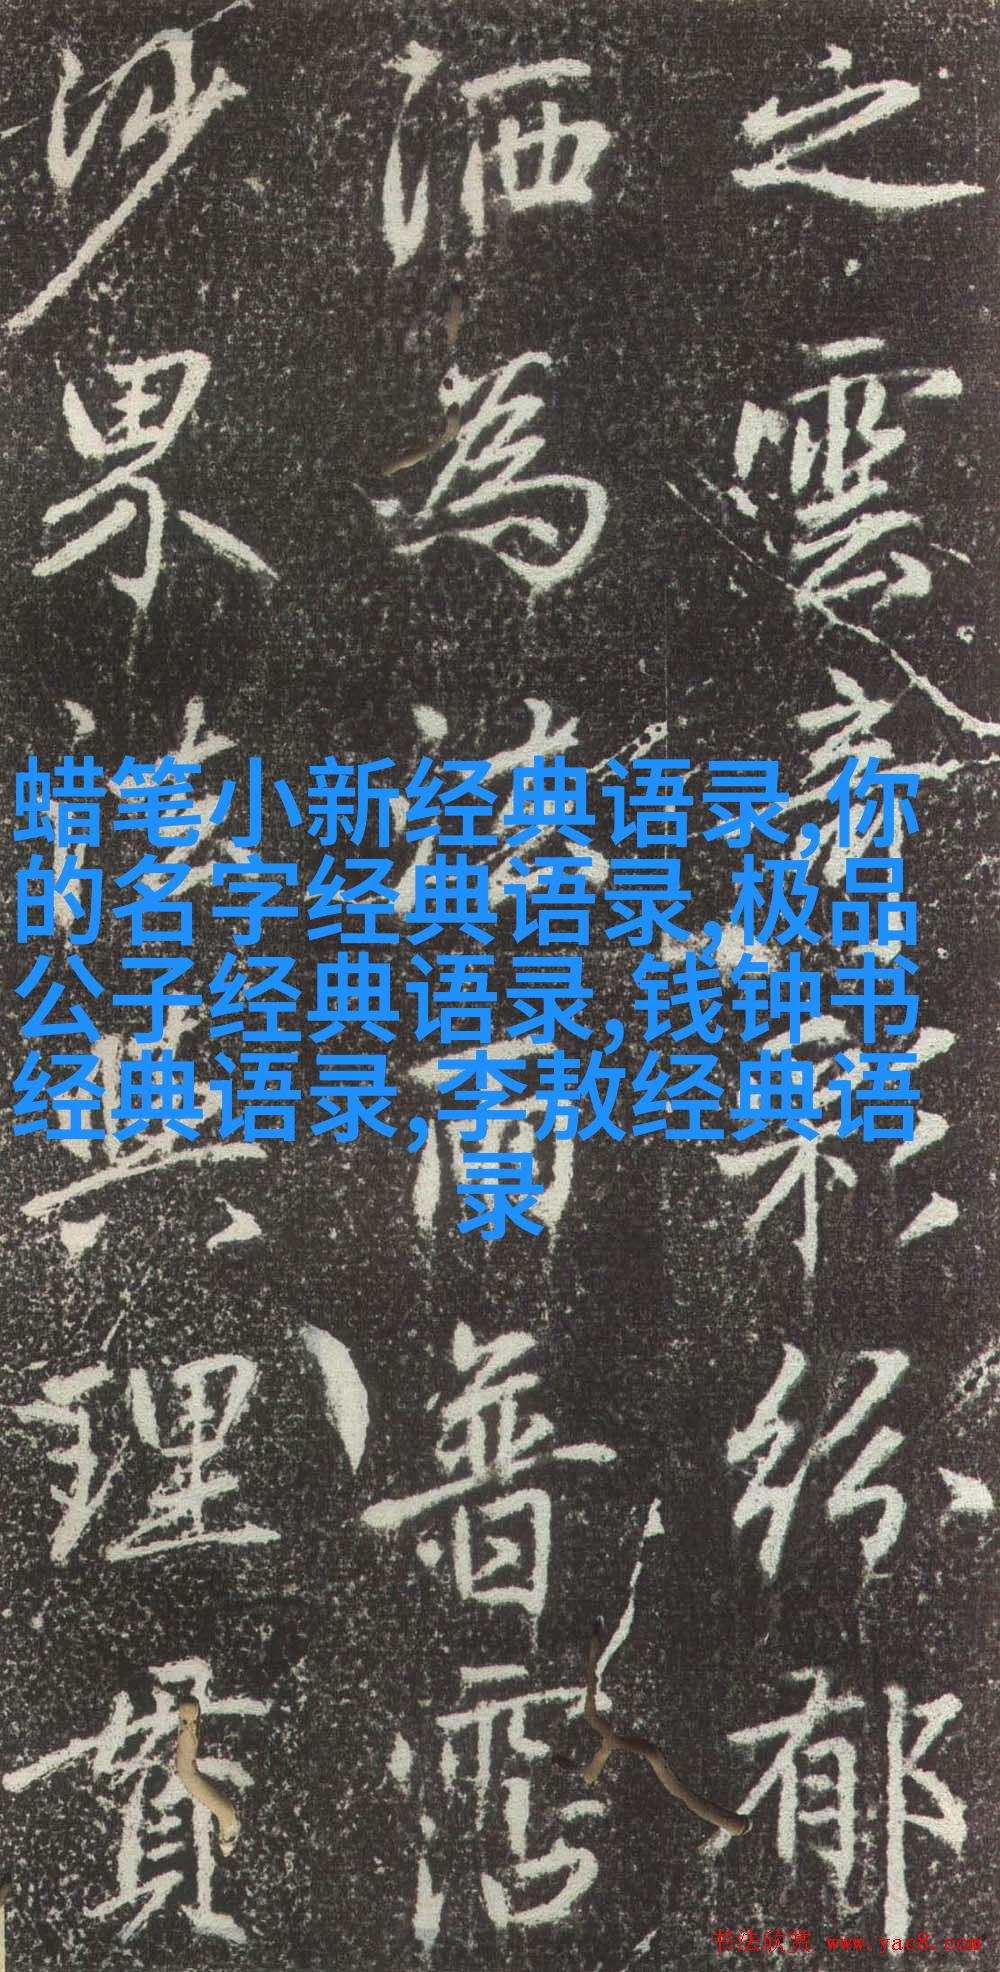 之雲紛郁
洒為法雨普霑
沙界法與理貫
蜡笔小新经典语录,你
的名字经典语录,极品
公子经典语录,钱钟书
经典语录,李敖经典语
录
书法欣赏 www.yac8.com